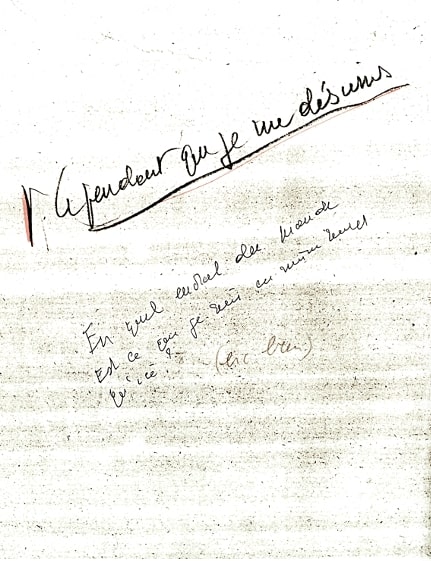 Cependant que je me désunis
En quel endroit du monde
Est ce que je suis en même temps
qu'ici ?